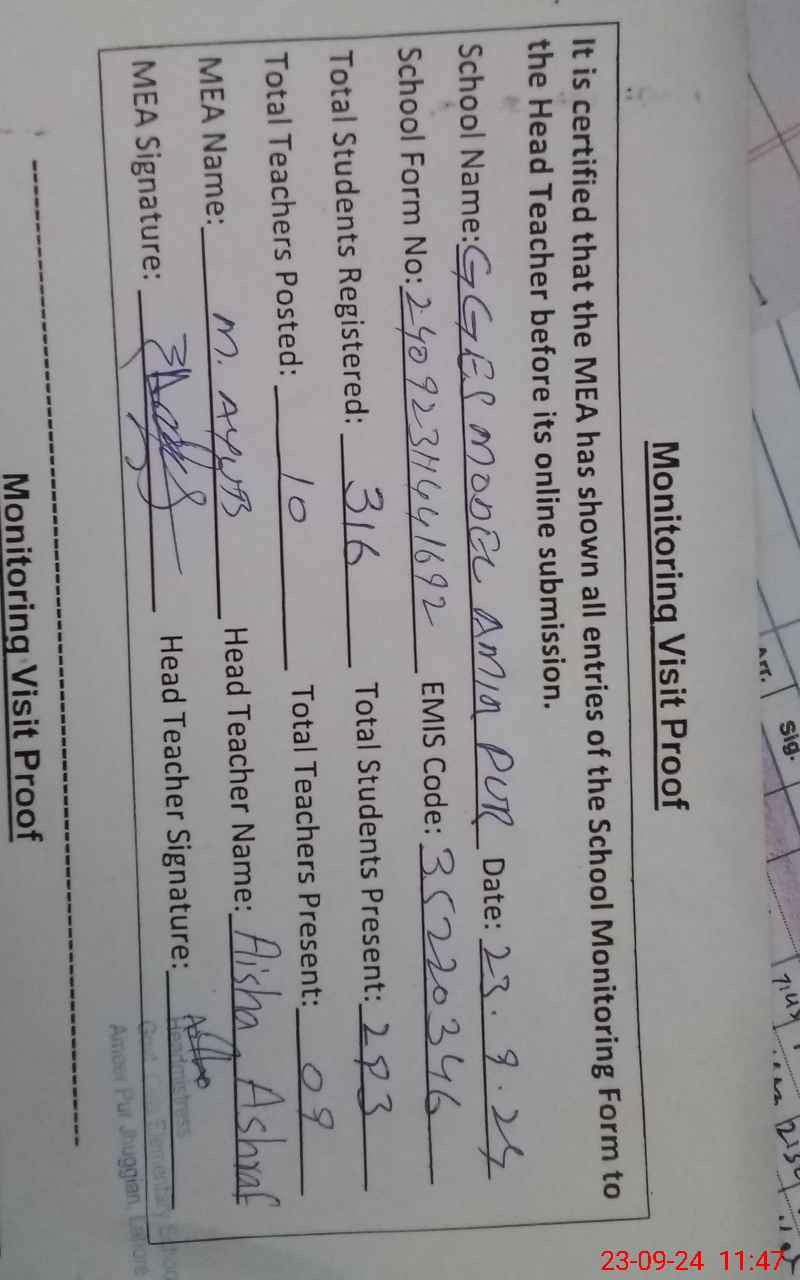 Monitoring Visit Proof
It is certified that the MEA has shown all entries of the School Monitoring Form to
the Head Teacher before its online submission.
School Name: GGES MODEL AMIR PUR Date: 23.9.24
School Form No: EMIS Code: 35220346
Total Students Registered: 316 Total Students Present: 293
Total Teachers Posted: 10 Total Teachers Present: 09
MEA Name: M. AYUB Head Teacher Name: Aisha Ashraf
MEA Signature: Head Teacher Signature:
Headmistress
Govt. Girls Elementary School
Ameer Pur Jhuggian, Lahore
Monitoring Visit Proof
Sig.
23-09-24 11:47